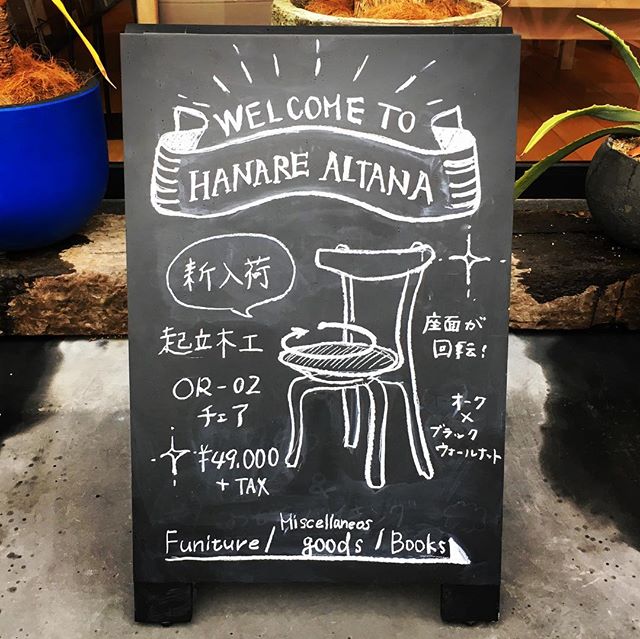 WELCOME TO
HANARE ALTANA
新入荷
起立木工
OR-02
チェア
¥49.000
+ TAX
座面が
回転!
オーク
×
ブラック
ウォールナット
Miscellaneos
Funiture/ goods / Books